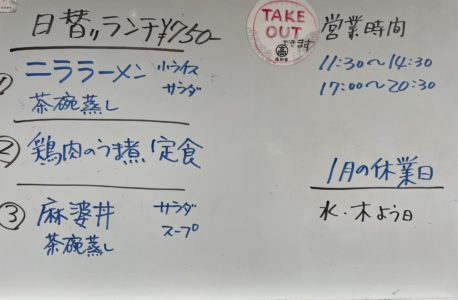 日替ランチ¥750-
① ニララーメン 小ライス
茶碗蒸し サラダ
② 鶏肉のうま煮定食
③ 麻婆丼 サラダ
茶碗蒸し スープ
TAKE
OUT
できます
営業時間
11:30〜14:30
17:00〜20:30
1月の休業日
水・木よう日